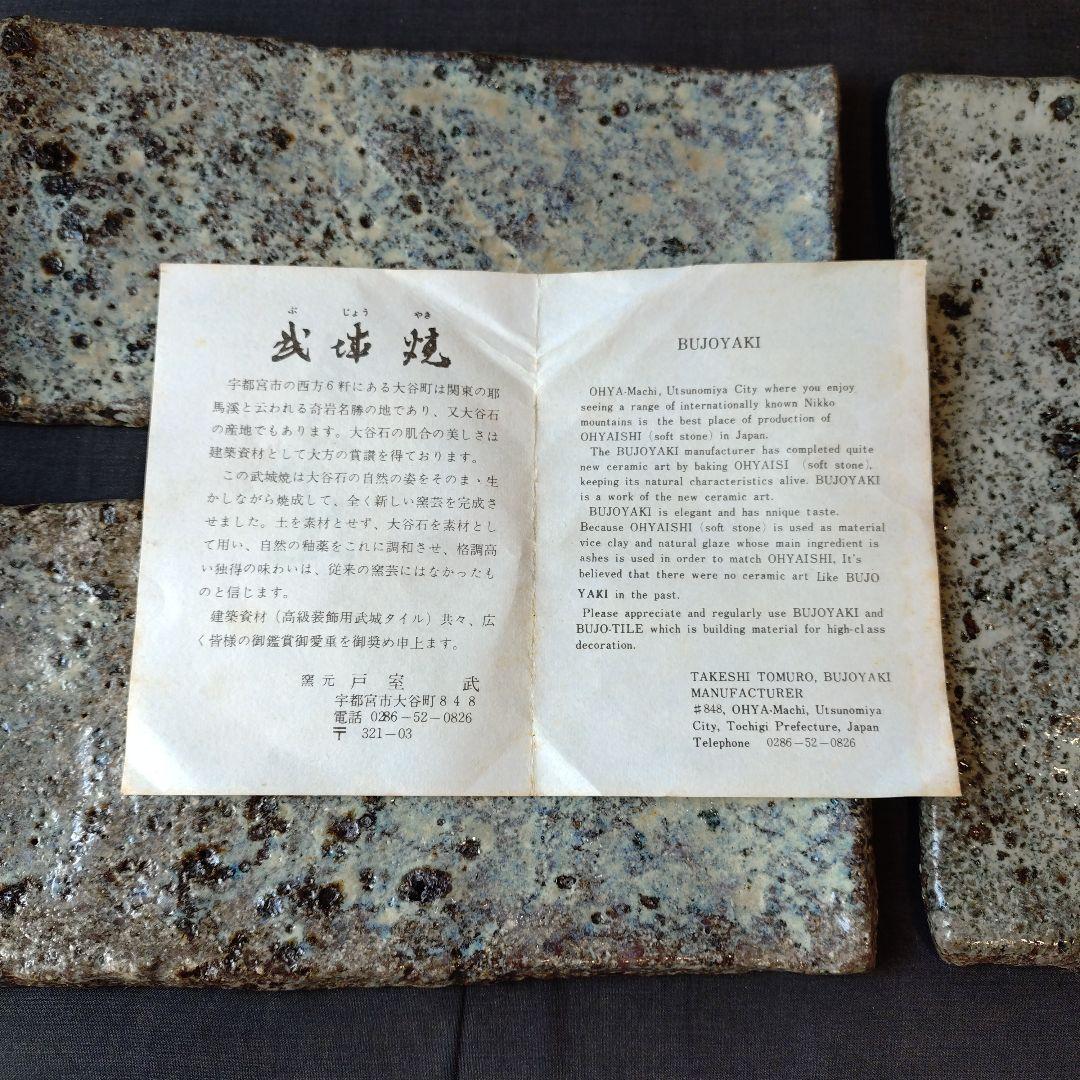 ぶ じょう やき
武城焼
宇都宮市の西方6粁にある大谷町は関東の耶
馬溪と云われる奇岩名勝の地であり、又大谷石
の産地でもあります。大谷石の肌合の美しさは
建築資材として大方の賞讃を得ております。
この武城焼は大谷石の自然の姿をそのまゝ生
かしながら焼成して、全く新しい窯芸を完成さ
せました。土を素材とせず、大谷石を素材とし
て用い、自然の釉薬をこれに調和させ、格調高
い独得の味わいは、従来の窯芸にはなかったも
のと信じます。
建築資材（高級装飾用武城タイル）共々、広
く皆様の御鑑賞御愛重を御奨め申上ます。
窯元 戸室 武
宇都宮市大谷町848
電話 0286-52-0826
〒 321-03
BUJOYAKI
OHYA-Machi, Utsunomiya City where you enjoy
seeing a range of internationally known Nikko
mountains is the best place of production of
OHYAISHI (soft stone) in Japan.
The BUJOYAKI manufacturer has completed quite
new ceramic art by baking OHYAISI (soft stone),
keeping its natural characteristics alive. BUJOYAKI
is a work of the new ceramic art.
BUJOYAKI is elegant and has nnique taste.
Because OHYAISHI (soft stone) is used as material
vice clay and natural glaze whose main ingredient is
ashes is used in order to match OHYAISHI, It's
believed that there were no ceramic art Like BUJO
YAKI in the past.
Please appreciate and regularly use BUJOYAKI and
BUJO-TILE which is building material for high-class
decoration.
TAKESHI TOMURO, BUJOYAKI
MANUFACTURER
#848, OHYA-Machi, Utsunomiya
City, Tochigi Prefecture, Japan
Telephone 0286-52-0826